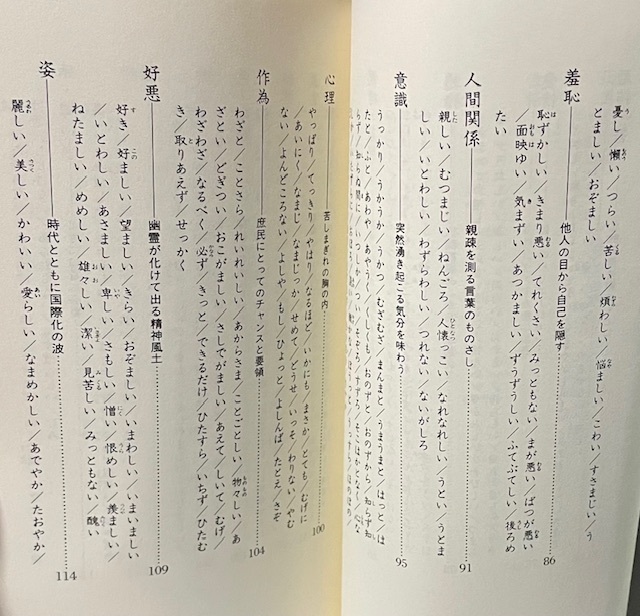 憂し／懶い／つらい／苦しい／煩わしい／悩ましい／こわい／すさまじい／う
とましい／おぞましい
羞恥――他人の目から自己を隠す……86
恥ずかしい／きまり悪い／てれくさい／みっともない／まが悪い／ばつが悪い
／面映ゆい／気まずい／あつかましい／ずうずうしい／ふてぶてしい／後ろめ
たい
人間関係――親疎を測る言葉のものさし……91
親しい／むつまじい／ねんごろ／人懐っこい／なれなれしい／うとい／うとま
しい／いとわしい／わずらわしい／つれない／ないがしろ
意識――突然湧き起こる気分を味わう……95
うっかり／うかうか／うかつ／むざむざ／まんまと／うまうまと／はっと／は
たと／ふと／あわや／あやうく／くしくも／おのずと／おのずから／知らず知
らず／知らぬ間に／いつしか
心理――苦しまぎれの胸の内……100
やっぱり／てっきり／やはり／なるほど／いかにも／まさか／とても／むげに
／あいにく／なまじ／なまじっか／せめて／どうせ／いっそ／わりない／やむ
ない／よんどころない／よしや／もし／ひょっと／よしんば／たとえ／さぞ
作為――庶民にとってのチャンスと要領……104
わざと／ことさら／れいれいしい／あからさま／ことごとしい／物々しい／あ
ざとい／どぎつい／おこがましい／さしでがましい／あえて／しいて／むげ／
わざわざ／なるべく／必ず／きっと／できるだけ／ひたすら／いちず／ひたむ
き／取りあえず／せっかく
好悪――幽霊が化けて出る精神風土……109
好き／好ましい／望ましい／きらい／おぞましい／いまわしい／いまいましい
／いとわしい／あさましい／卑しい／さもしい／憎い／恨めしい／羨ましい／
ねたましい／めめしい／雄々しい／潔い／見苦しい／みっともない／醜い
姿――時代とともに国際化の波……114
麗しい／美しい／かわいい／愛らしい／なまめかしい／あでやか／たおやか／